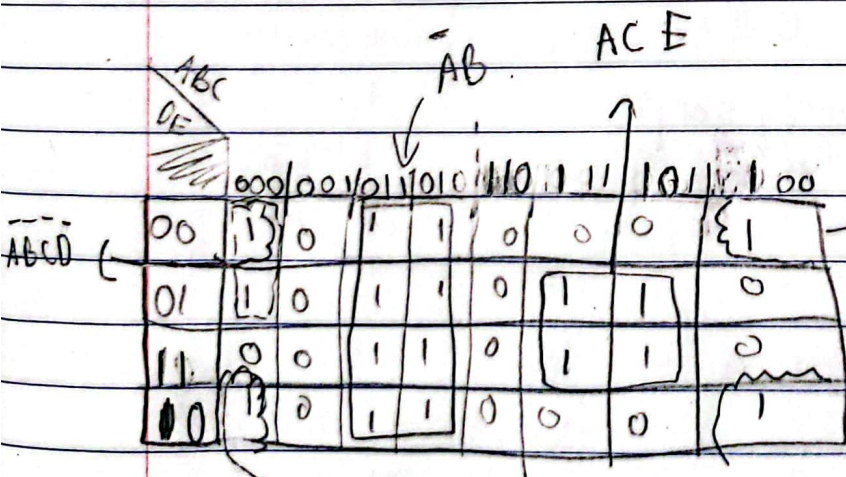 A̅B
ACE
ABC
DE
000 001 011 010 110 111 101 100
00 1 0 1 1 0 0 0 1
A̅B̅C̅D̅
01 1 0 1 1 0 1 1 0
11 0 0 1 1 0 1 1 0
10 1 0 1 1 0 0 0 1